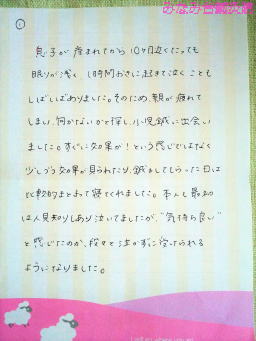 ①
息子が産まれてから10ヶ月近くたっても
眠りが浅く、1時間おきに起きて泣くことも
しばしばありました。そのため、親が疲れて
しまい、何かないかと探し、小児鍼に出会い
ました。すぐに効果が！という感じではなく
少しづつ効果が見られたり、鍼をしてもらった日は
比較的まとまって寝てくれました。本人も最初
は人見知りしあり泣いてましたが、"気持ち良い"
と感じたのか、段々と泣かずに受けられる
ようになりました。